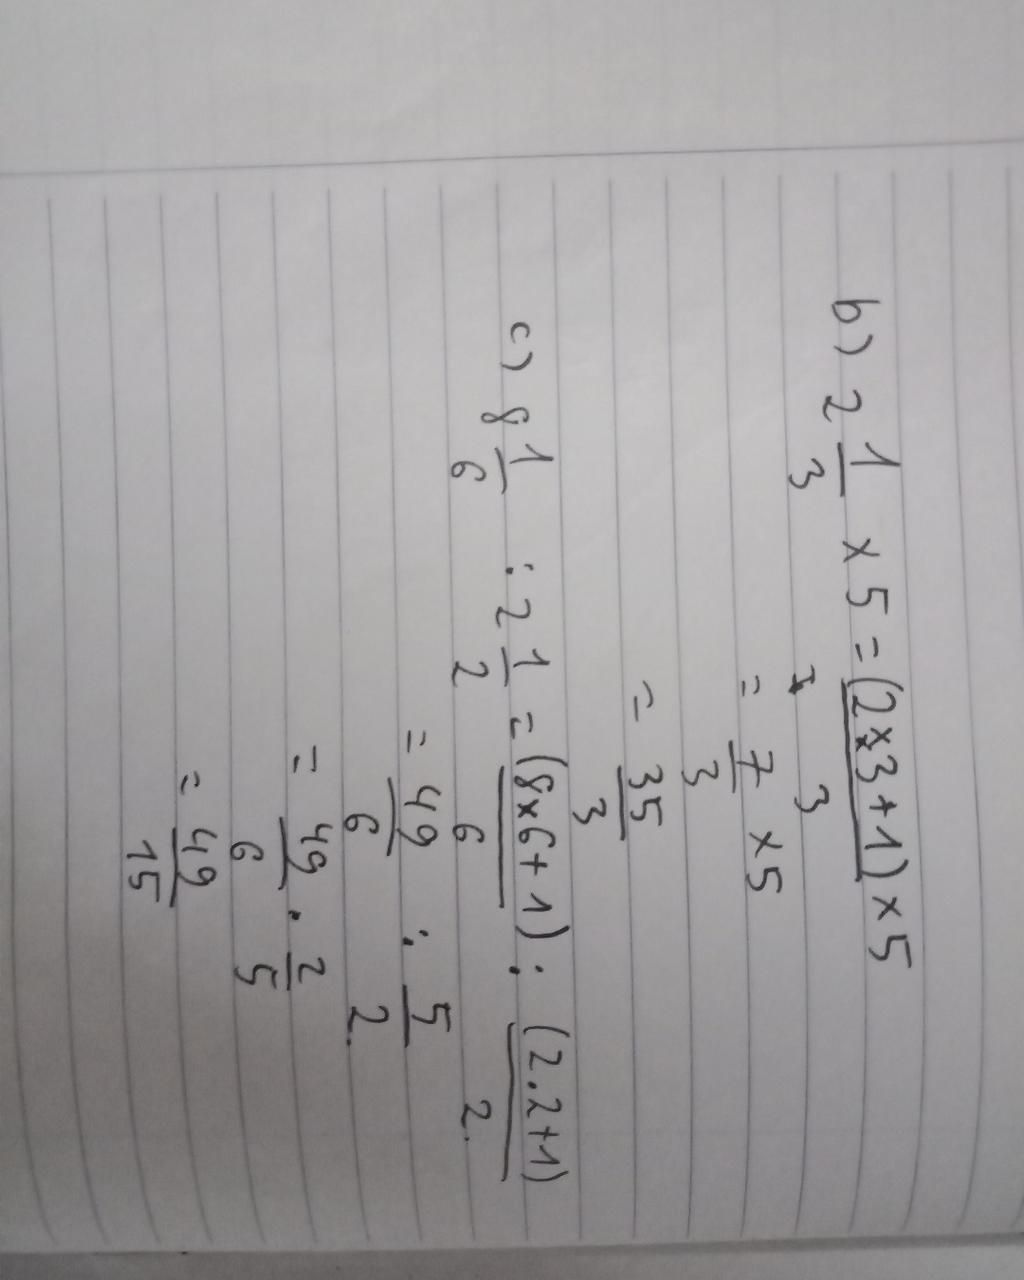 b) 2 1/3 x 5 = (2x3+1)/3 x 5
= 7/3 x5
= 35/3
c) 8 1/6 : 2 1/2 = (8x6+1)/6 : (2.2+1)/2
= 49/6 : 5/2
= 49/6 . 2/5
= 49/15